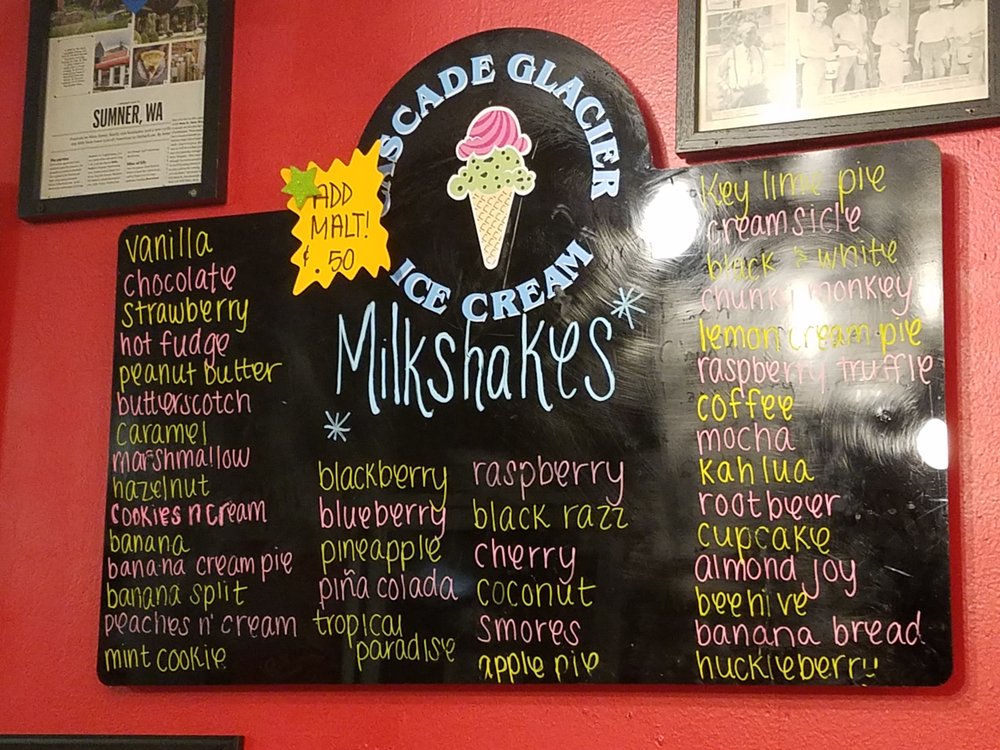 SUMNER, WA
CASCADE GLACIER
ICE CREAM
ADD
MALT!
$.50
Milkshakes
vanilla
chocolate
strawberry
hot fudge
peanut butter
butterscotch
caramel
marshmallow
hazelnut
cookies n cream
banana
banana cream pie
banana split
peaches n' cream
mint cookie
blackberry
blueberry
pineapple
piña colada
tropical
paradise
raspberry
black razz
cherry
coconut
smores
apple pie
Key lime pie
creamsicle
black & white
chunky monkey
lemon cream pie
raspberry truffle
coffee
mocha
kahlua
rootbeer
cupcake
almond joy
beehive
banana bread
huckleberry